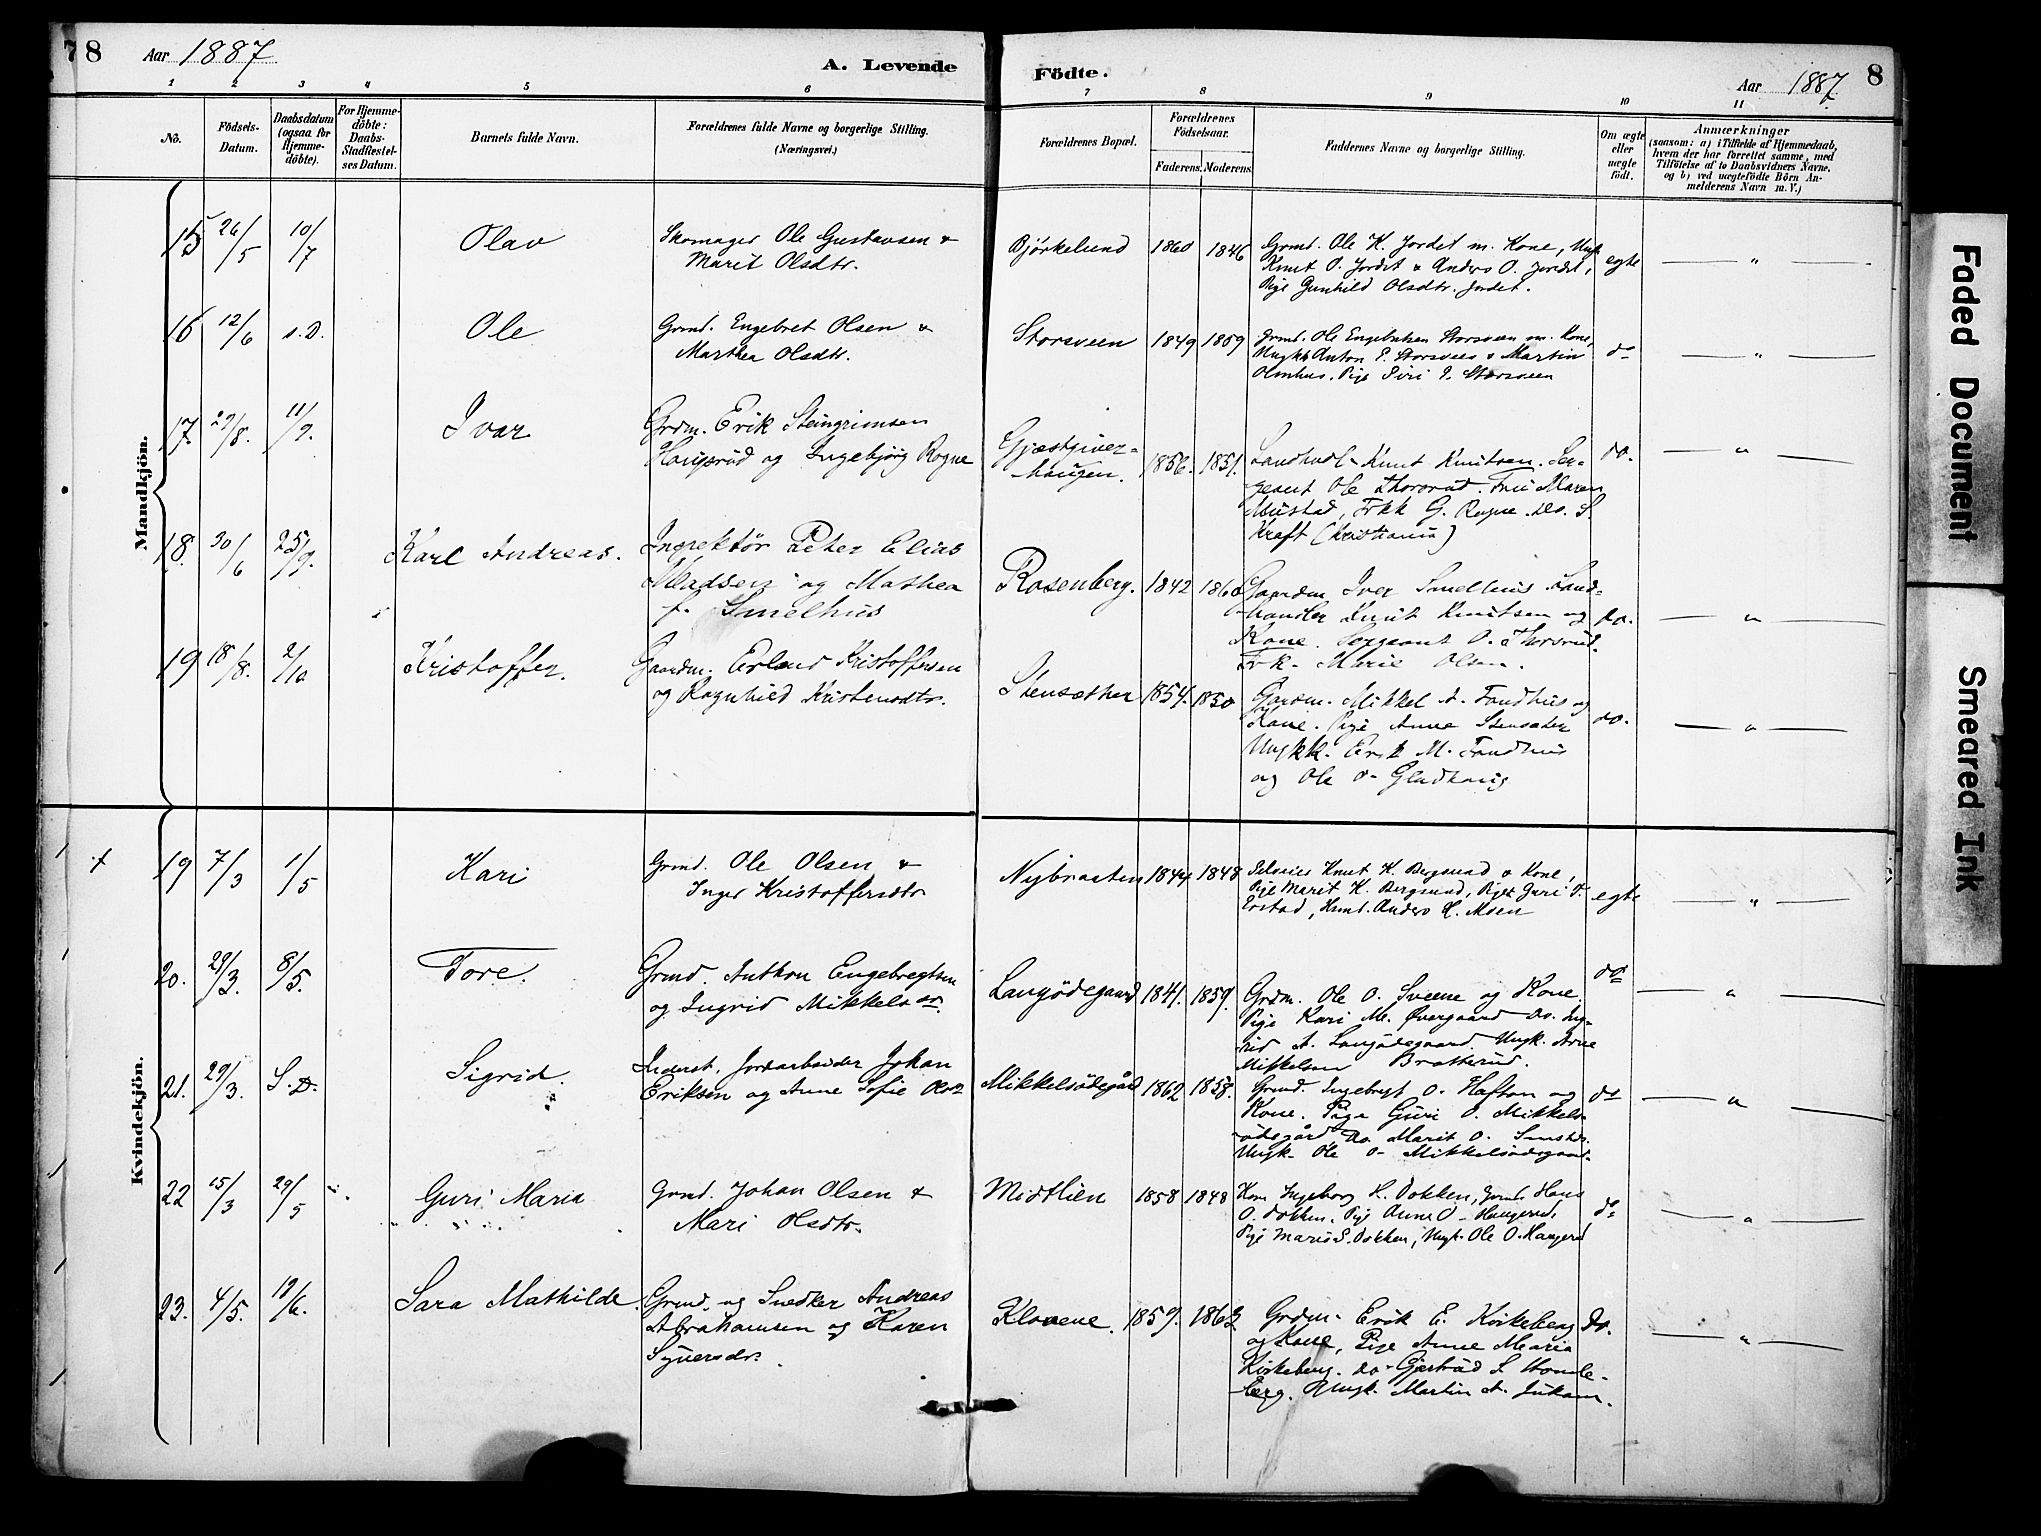 78 Aar 1887 A. Levende Födte. Aar 1887. 8
1 2 3 4 5 6 7 8 9 10 11
No.
Födsels-Datum.
Daabsdatum (ogsaa for Hjemme-döbte).
For Hjemme-döbte: Daabs-Stadfæstel-ses Datum.
Barnets fulde Navn.
Forældrenes fulde Navne og borgerlige Stilling. (Næringsvei.)
Forældrenes Bopæl.
Forældrenes Födselsaar.
Faderens. Moderens.
Faddernes Navne og borgerlige Stilling.
Om ægte eller uægte födt.
Anmærkninger
(saasom: a) i Tilfælde af Hjemmedaab,
hvem der har forrettet samme, med
Tilföielse af to Daabsvidners Navne,
og b) ved uægtefödte Börn An-
melderens Navn m. V.)
Mandkjön.
15 26/5 10/7 Olav
Skomager Ole Gustavsen &
Marit Olsdtr.
Bjørkelund 1860 1846
Grmd. Ole K. Jordet m. Kone, Ungk.
Knut O. Jordet & Anders O. Jordet,
Pige Gunhild Olsdtr. Jordet.
egte — " —
16 12/6 s.D. Ole
Grmd. Engebret Olsen &
Marthea Olsdtr.
Storsveen 1849 1859
Grmd. Ole Engebretsen Storsveen m. Kone,
Ungkk Anton E. Storsveen & Martin
Olmhus. Pige Siri E. Storsveen
do — " —
17. 29/8. 11/9. Ivar
Grdm. Erik Steingrimsen
Haugsrud og Ingebjørg Rogne
Gjæstgiver-
haugen. 1856. 1851.
Landhdl. Knut Knutsen. Ser-
geant Ole Thorsrud. Fru Maren
Mustad, Frk G. Rogne. Do. S.
Kraft (Kristiania)
do. — " —
18. 30/6 25/9. Karl Andreas.
Inspektør Peter Elias
Madsen og Mathea
f. Smelhus
Rosenberg. 1842
Gaardm. Iver Smelhus Land-
handler Knut Knutsen og
Kone. Sergeant O. Thorsrud.
Frk. Marie Olsen.
do. — " —
19 18/8. 2/10 Kristoffer.
Gaardm. Erland Kristoffersen
og Ragnhild Kristensdtr.
Stensæther 1854. 1850
Gaardm. Mikkel A. Fondhus og
Kone. Pige Anne Stensæter
Ungkk. Erik M. Fondhus
og Ole O. Gladhaug
do. — " —
Kvindekjön.
19 7/3 1/5 Kari
Grmd. Ole Olsen &
Inger Kristoffersdtr
Nybraaten 1844 1848
Selveier Knut K. Bergsund & Kone,
Pige Marit K. Bergsund, Pige Guri
Anders H. Moen
egte — " —
20. 29/3. 8/5. Tore.
Grmd. Anthon Engebregtsen
og Ingrid Mikkelsdr.
Langødegaard 1841. 1859.
Grdm. Ole O. Sveene og Kone.
Pige Kari M. Øvergaard Do. Ing-
rid A. Langødegaard. Ungk. Arne
Mikkelsen Bratterud.
do — " —
21. 29/3. S.D. Sigrid.
Inderst, Jordarbeider Johan
Eriksen og Anne Sofie Olsdr
Mikkelsødegård 1862 1858.
Grmd. Ingebregt O. Haften og
Kone. Pige Guri O. Mikkels-
ødegård, Do Marit O.
Ungk. Ole O. Mikkelsødegaard.
do — " —
22 15/3 29/5 Guri Maria
Grmd. Johan Olsen &
Mari Olsdtr.
Midtlien 1858 1848
Kone Ingeborg H. Dokken, Grmd. Hans
O. Dokken. Pige Anne O. Haugerud,
Pige Maria S. Dokken, Ungk. Ole O. Haugerud
do — " —
23. 4/5. 19/6. Sara Mathilde.
Grmd. og Snedker Andreas
Abrahamsen og Karen
Syversdr.
Klovene. 1859. 1863
Grdm. Erik E. Kirkeberg
og Kone, Pige Anne Maria
Kirkeberg. Do. Gjertrud S.
Ungk. Martin A.
Do. — " —
Faded Document
Smeared Ink